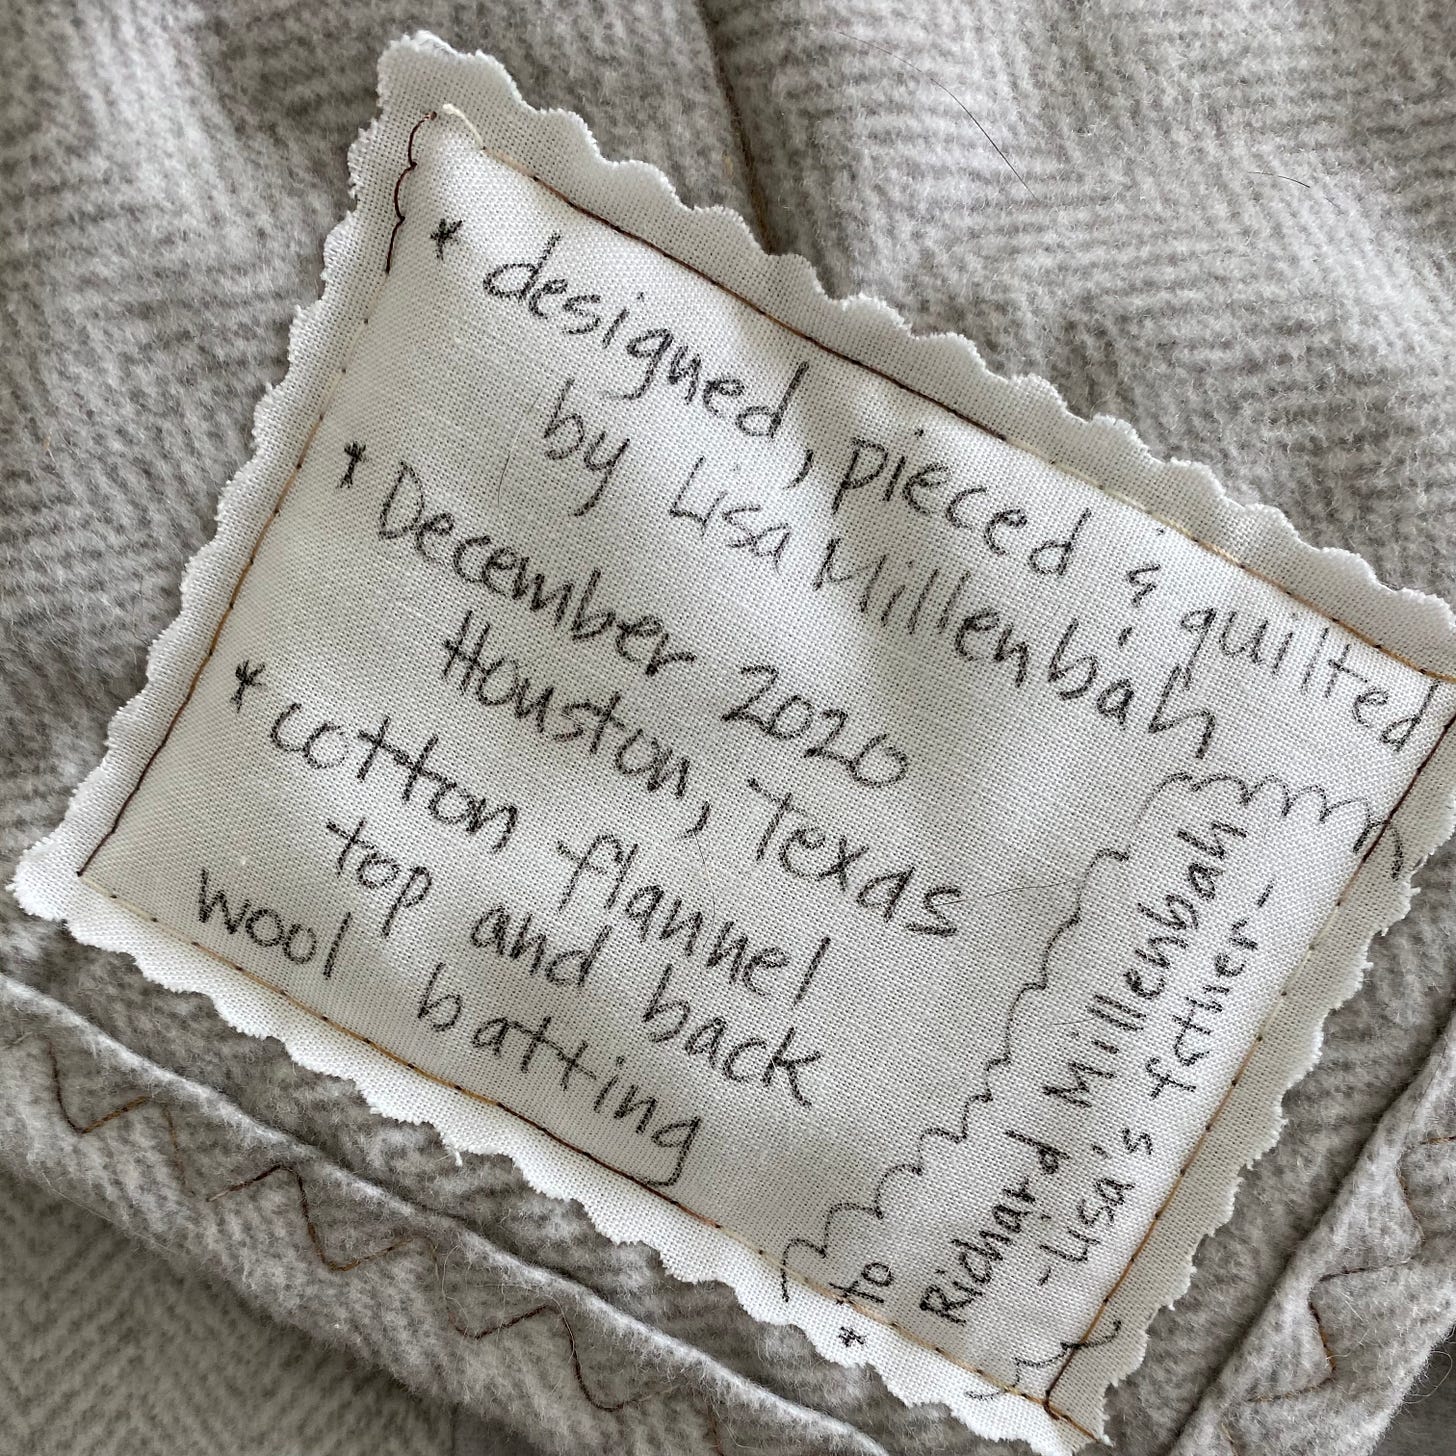 * designed, pieced & quilted
by Lisa Millenbah
* December 2020
Houston, Texas
* cotton flannel
top and back
wool batting
* to
Richard Millenbah
-Lisa's father-